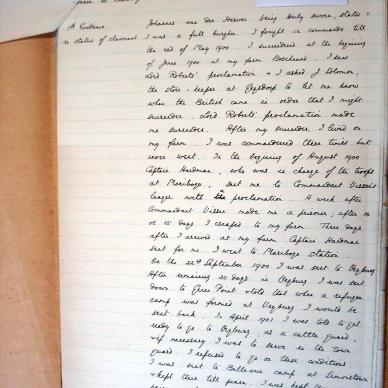 1st Evidence
re status of claimant
Johannes van der Merwe being duly sworn, states +
I was a full burgher. I fought on commando till
the end of May 1900. I surrendered at the beginning
of June 1900 at my farm. I saw
Lord Roberts' proclamation & I asked J. Solomon,
the store-keeper at to let me know
when the British came in order that I might
surrender. Lord Roberts' proclamation made
me surrender. After my surrender I lived on
my farm. I was commandeered three times but
never went. In the beginning of August 1900
Captain Hardman, who was in charge of the troops
at Maribogo, sent me to Commandant
laager with the proclamation. A week after
Commandant made me a prisoner; after 14
or 15 days I escaped to my farm. Three days
after I arrived at my farm Captain Hardman
sent for me. I went to Maribogo station.
On the 22nd September 1900 I was sent to Vryburg
After remaining 20 days in Vryburg I was sent
down to & told that when a refugee
camp was formed at Vryburg I would be
sent back. In April 1901 I was told to get
ready to go to Vryburg, as a cattle guard,
& if necessary I was to serve in the town
guard. I refused to go on these conditions
I was sent to Bellevue camp at Simonstown
& kept there till peace. I was kept